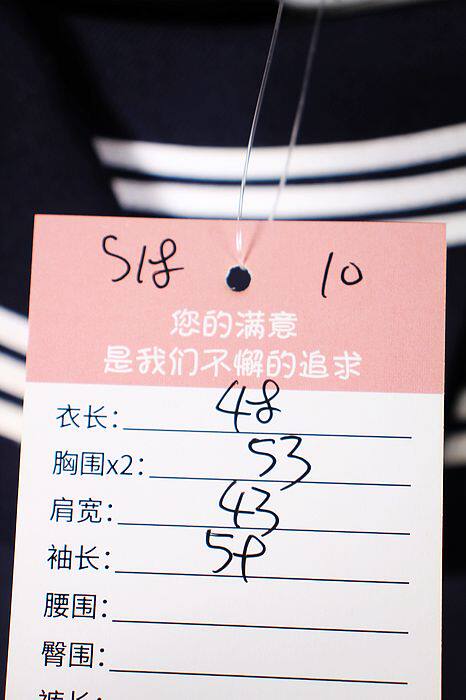 S18 10
您的满意
是我们不懈的追求
衣长: 48
胸围x2: 53
肩宽: 43
袖长:
腰围:
臀围:
裤长: